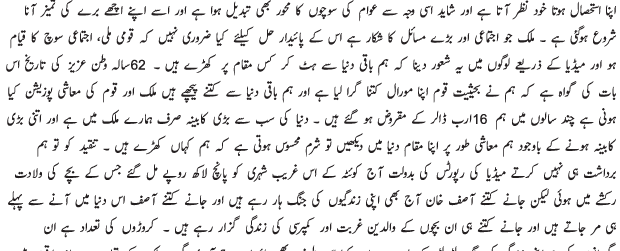 اپنا استحصال ہوتا خود نظر آتا ہے اور شاید اسی وجہ سے عوام کی سوچوں کا محور بھی تبدیل ہوا ہے اور اسے اپنے اچھے برے کی تمیز آنا
شروع ہوگئی ہے ۔ ملک جو اجتماعی اور بڑے مسائل کا شکار ہے اس کے پائیدار حل کیلئے کیا ضروری نہیں کہ قومی ملی، اجتماعی سوچ کا قیام
ہو اور میڈیا کے ذریعے لوگوں میں یہ شعور دینا کہ ہم باقی دنیا سے ہٹ کر کس مقام پر کھڑے ہیں ۔ 62سالہ وطن عزیز کی تاریخ اس
بات کی گواہ ہے کہ ہم نے بحیثیت قوم اپنا مورال کتنا گرا لیا ہے اور ہم باقی دنیا سے کتنے پیچھے ہیں ملک اور قوم کی معاشی پوزیشن کیا
ہونی ہے چند سالوں میں ہم 16ارب ڈالر کے مقروض ہو گئے ہیں ۔ دنیا کی سب سے بڑی کابینہ صرف ہمارے ملک میں ہے اور اتنی بڑی
کابینہ ہونے کے باوجود ہم معاشی طور پر اپنا مقام دنیا میں دیکھیں تو شرم محسوس ہوتی ہے کہ ہم کہاں کھڑے ہیں ۔ تنقید کو تو ہم
برداشت ہی نہیں کرتے میڈیا کی رپورٹس کی بدولت آج کوئٹہ کے اس غریب شہری کو پانچ لاکھ روپے مل گئے جس کے بچے کی ولادت
رکشے میں ہوئی لیکن جانے کتنے آصف خان آج بھی اپنی زندگیوں کی جنگ ہار رہے ہیں اور جانے کتنے آصف اس دنیا میں آنے سے پہلے
ہی مر جاتے ہیں اور جانے کتنے ہی ان بچوں کے والدین غربت اور کمپرسی کی زندگی گزار رہے ہیں ۔ کروڑوں کی تعداد ہے ان